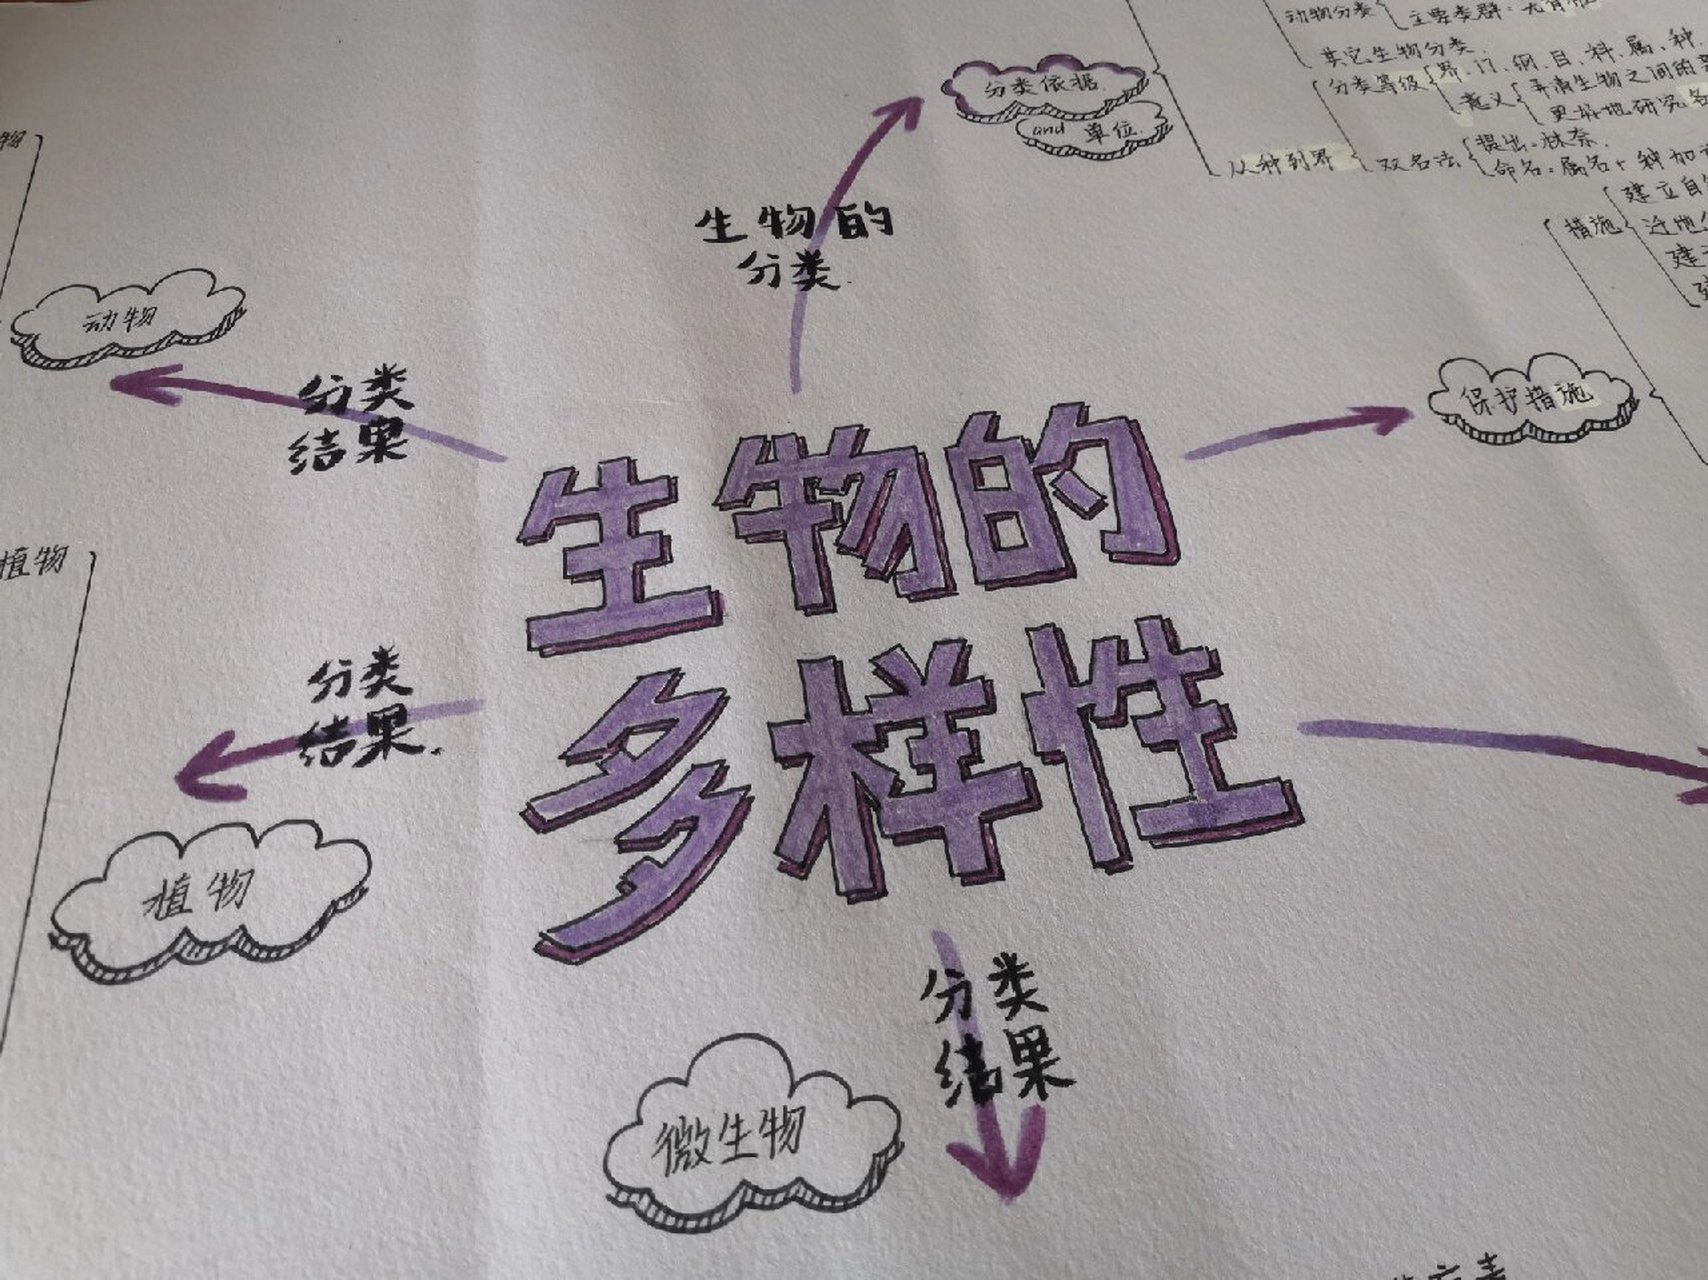 动物分类
主要类群：无脊椎
其它生物分类.
分类等级
界、门、纲、目、科、属、种.
意义
弄清生物之间的
更好地研究
从种到界
双名法
提出：林奈.
命名：属名+种加
分类依据
and 单位.
措施
建立自
迁地
建
保护措施
生物的
分类.
物
动物
分类
结果
生物的
多样性
植物
分类
结果.
植物
分类
结果
微生物